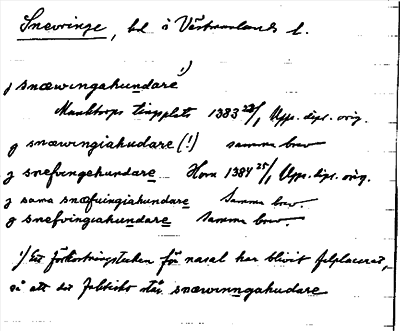 Snevringe, hd i Västmanlands l.
j snæwingahundare 1)
Munktorps tingsplats 1383 23/1, Upps. dipl. orig.
j snæwingiahudare (!) samma brev
j snefvingehundare Horn 1384 25/1, Upps. dipl. orig.
j sama snæfuingiahundare Samma brev.
j snefvingiahundare Samma brev.
1) Ett förkortningstecken för nasal har blivit felplacerat,
så att det faktiskt står snæwinngahudare